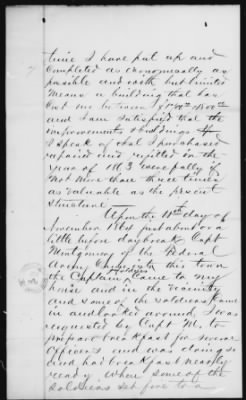 time I have put up and
completed as economically as
possible and with but limited
means a building that has
cost me between
and I am satisfied that the
improvements & buildings
I speak of that I purchased
repaired and refitted in the
year of 1863 were fully
not more than three times
as valuable as the present
structure
Upon the 11th day of
November 1864 just about or a
little before daybreak, Capt
Montgomery of the Federal
Army this town
the Captain came to my
house and in the vicinity
and some of the soldiers came
in and looked around, I was
requested by Capt M. to
prepare breakfast for several
officers and was doing so
and had breakfast nearly
ready when some of the
soldiers set fire to a